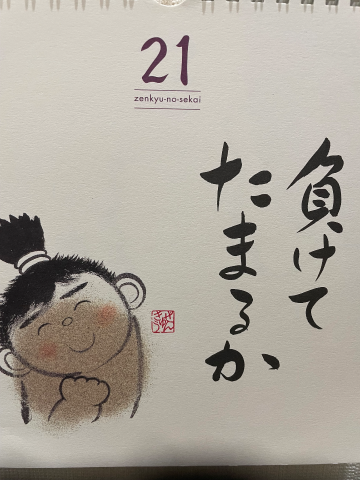 21
zenkyu-no-sekai
負けて
たまるか